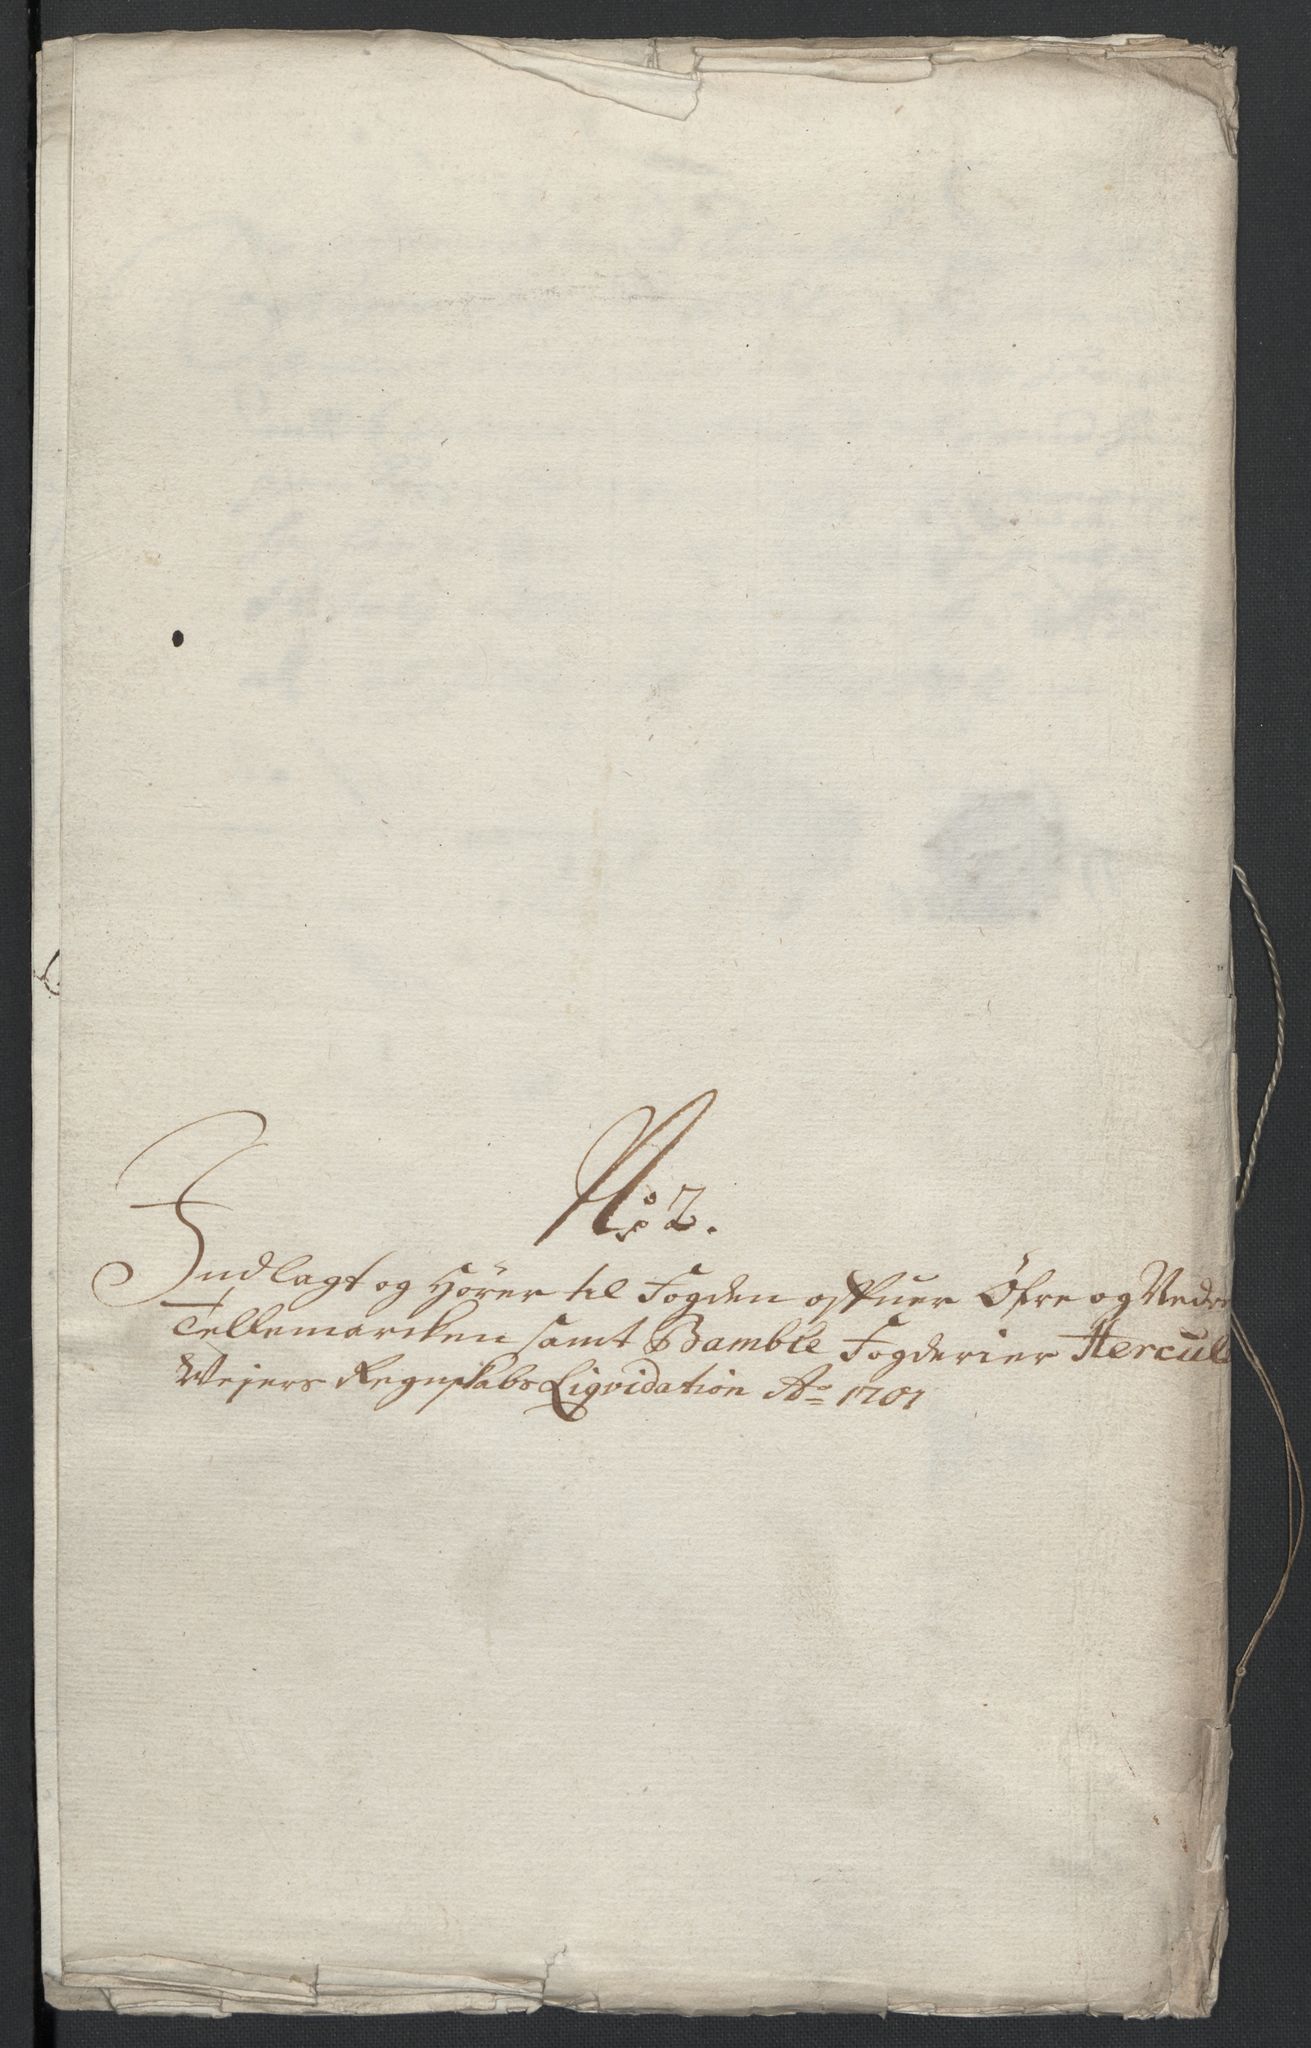 No: 2.
Indlagt og Hörer til Fogden offuer Öfre og Nedre
Tellemarcken samt Bamble Fogderier Hercule
Weyers Regnskabs Liqvidation Ao 1707